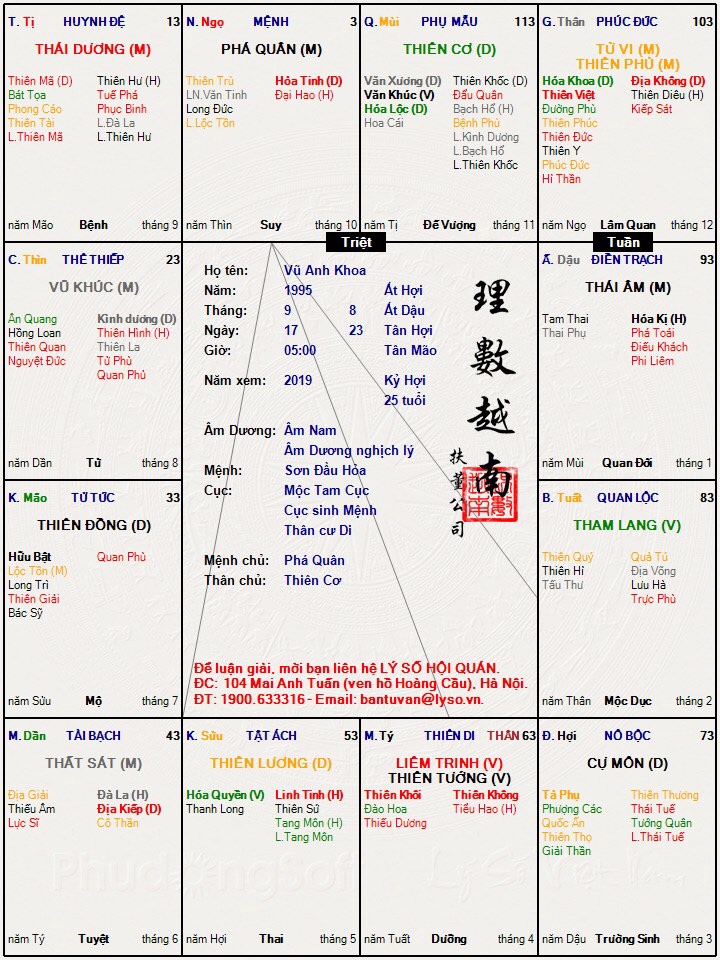 T. Tị HUYNH ĐỆ 13
THÁI DƯƠNG (M)
Thiên Mã (D) Thiên Hư (H)
Bát Tọa Tuế Phá
Phong Cáo Phục Binh
Thiên Tài L.Đà La
L.Thiên Mã L.Thiên Hư
năm Mão Bệnh tháng 9
N. Ngọ MỆNH 3
PHÁ QUÂN (M)
Thiên Trù Hỏa Tinh (D)
LN.Văn Tinh Đại Hao (H)
Long Đức
L.Lộc Tồn
năm Thìn Suy tháng 10
Q. Mùi PHỤ MẪU 113
THIÊN CƠ (D)
Văn Xương (D) Thiên Khốc (D)
Văn Khúc (V) Đẩu Quân
Hóa Lộc (D) Bạch Hổ (H)
Hoa Cái Bệnh Phù
L.Kình Dương
L.Bạch Hổ
L.Thiên Khốc
năm Tị Đế Vượng tháng 11
G. Thân PHÚC ĐỨC 103
TỬ VI (M)
THIÊN PHỦ (M)
Hóa Khoa (D) Địa Không (D)
Thiên Việt Thiên Diêu (H)
Đường Phù Kiếp Sát
Thiên Phúc
Thiên Đức
Thiên Y
Phúc Đức
Hỉ Thần
năm Ngọ Lâm Quan tháng 12
Triệt
Tuần
C. Thìn THÊ THIẾP 23
VŨ KHÚC (M)
Ân Quang Kình dương (D)
Hồng Loan Thiên Hình (H)
Thiên Quan Thiên La
Nguyệt Đức Tử Phù
Quan Phủ
năm Dần Tử tháng 8
Họ tên: Vũ Anh Khoa
Năm: 1995 Ất Hợi
Tháng: 9 8 Ất Dậu
Ngày: 17 23 Tân Hợi
Giờ: 05:00 Tân Mão
Năm xem: 2019 Kỷ Hợi
25 tuổi
Âm Dương: Âm Nam
Âm Dương nghịch lý
Mệnh: Sơn Đầu Hỏa
Cục: Mộc Tam Cục
Cục sinh Mệnh
Thân cư Di
Mệnh chủ: Phá Quân
Thân chủ: Thiên Cơ
理數越南
扶董公司
Để luận giải, mời bạn liên hệ LÝ SỐ HỘI QUÁN.
ĐC: 104 Mai Anh Tuấn (ven hồ Hoàng Cầu), Hà Nội.
ĐT: 1900.633316 - Email: bantuvan@lyso.vn.
Ấ. Dậu ĐIỀN TRẠCH 93
THÁI ÂM (M)
Tam Thai Hóa Kị (H)
Thai Phụ Phá Toái
Điếu Khách
Phi Liêm
năm Mùi Quan Đới tháng 1
K. Mão TỬ TỨC 33
THIÊN ĐỒNG (D)
Hữu Bật Quan Phù
Lộc Tồn (M)
Long Trì
Thiên Giải
Bác Sỹ
năm Sửu Mộ tháng 7
B. Tuất QUAN LỘC 83
THAM LANG (V)
Thiên Quý Quả Tú
Thiên Hỉ Địa Võng
Tấu Thư Lưu Hà
Trực Phù
năm Thân Mộc Dục tháng 2
M. Dần TÀI BẠCH 43
THẤT SÁT (M)
Địa Giải Đà La (H)
Thiếu Âm Địa Kiếp (D)
Lực Sĩ Cô Thần
năm Tý Tuyệt tháng 6
K. Sửu TẬT ÁCH 53
THIÊN LƯƠNG (D)
Hóa Quyền (V) Linh Tinh (H)
Thanh Long Thiên Sứ
Tang Môn (H)
L.Tang Môn
năm Hợi Thai tháng 5
M. Tý THIÊN DI THÂN 63
LIÊM TRINH (V)
THIÊN TƯỚNG (V)
Thiên Khôi Thiên Không
Đào Hoa Tiểu Hao (H)
Thiếu Dương
năm Tuất Dưỡng tháng 4
Đ. Hợi NÔ BỘC 73
CỰ MÔN (D)
Tả Phụ Thiên Thương
Phượng Các Thái Tuế
Quốc Ấn Tướng Quân
Thiên Thọ L.Thái Tuế
Giải Thần
năm Dậu Trường Sinh tháng 3